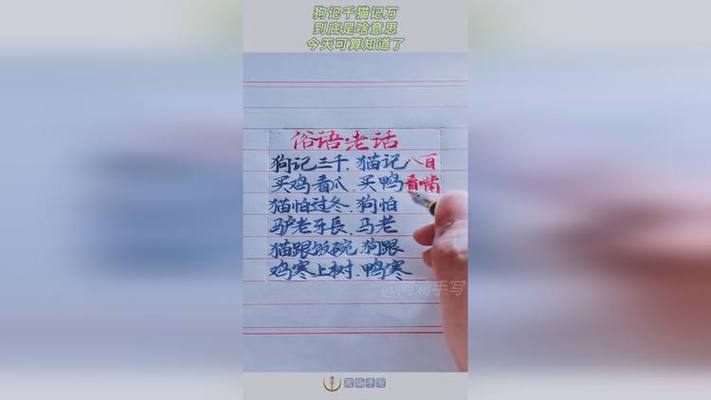 狗记千猫记万
到底是啥意思
今天可算知道了
俗语老话
狗记三千.猫记八百
买鸡看爪.买鸭看嘴
猫怕过冬.狗怕
驴老牙長.马老
猫跟饭碗.狗跟
鸡寒上树.鸭寒
@阿涵手写